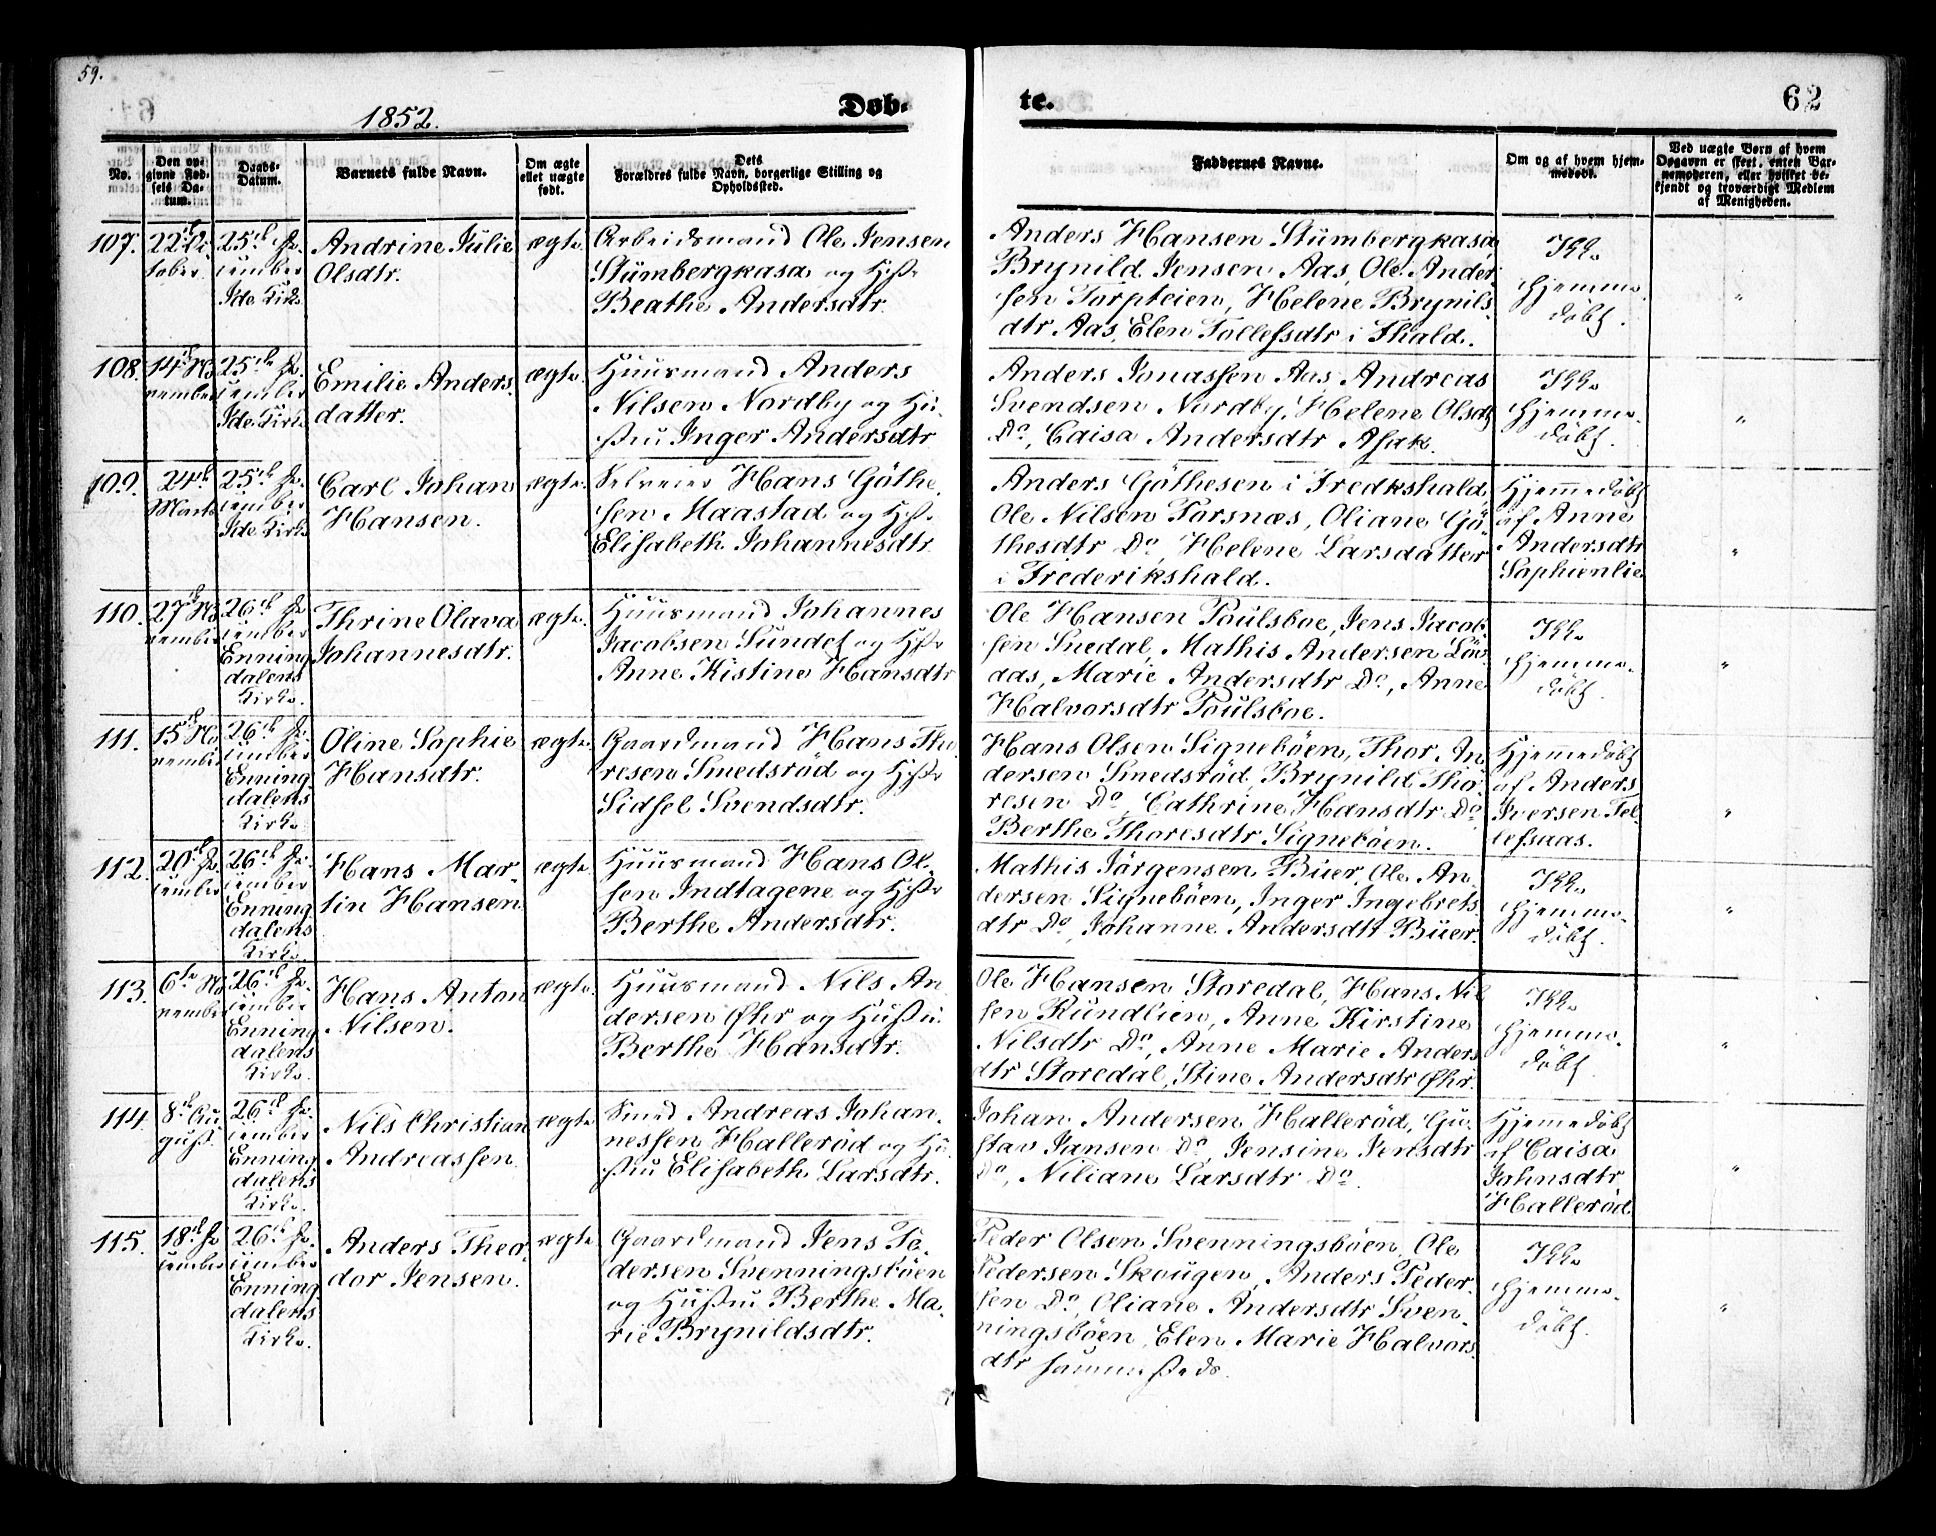 59.
1852.
Døb-
te.
62
No.
Den op-
givne Fød-
sels Da-
tum.
Daabs-
Datum.
Barnets fulde Navn.
Om ægte
ellet uægte
født.
Dets
Forældres fulde Navn, borgerlige Stilling og
Opholdssted.
Faddernes Navne.
Om og af hvem hjem-
medøbt.
Ved uægte Børn af hvem
Opgaven er skeet, enten Bar-
nemoderen, eller hvilket be-
kjendt og troværdigt Medlem
af Menigheden.
107.
22de Oc-
tober
25de De-
cember
Ide Kirke
Andrine Julie
Olsdtr.
ægte.
Arbeidsmand Ole Jensen
Stumbergkasa og Hstr
Beathe Andersdtr.
Anders Hansen Stumbergkasa,
Brynild Jensen Aas, Ole Ander-
sen Torpteien, Helene Brynils-
dtr Aas, Elen Tollefsdtr i Fhald.
Ikke
hjemme-
døbt.
"
108.
14de No-
vember
25de De-
cember
Ide Kirke
Emilie Anders-
datter.
ægte.
Huusmand Anders
Nilsen Nordby og Hu-
stru Inger Andersdtr
Anders Jonassen Aas, Andreas
Svendsen Nordby, Helene Olsdtr
Do, Caisa Andersdtr Asak.
Ikke
hjemme-
døbt.
"
109.
24de
Marts
25de De-
cember
Ide Kirke
Carl Johan
Hansen.
ægte.
Selveier Hans Göthe-
sen Maastad og Hstr
Elisabeth Johannesdtr.
Anders Göthesen i Fredkshald,
Ole Nilsen Torsnæs, Oliane Gö-
thesdtr Do, Helene Larsdatter
i Frederikshald.
Hjemmedøbt
af Anne
Andersdtr
Sophienlie
"
110.
27de No-
vember
26de De-
cember
Enning-
dalens
Kirke.
Thrine Olava
Johannesdtr.
ægte.
Huusmand Johannes
Jacobsen Sundet og Hstr
Anne Kistine Hansdtr
Ole Hansen Poulsboe, Jens Jacob-
sen Snedal, Mathis Andersen Löv-
aas, Marie Andersdtr Do, Anne
Halvorsdtr Poulsboe.
Ikke
hjemme-
døbt.
"
111.
15de No-
vember
26de De-
cember
Enning-
dalens
Kirke
Oline Sophie
Hansdtr.
ægte.
Gaardmand Hans Tho-
resen Smedsröd og Hstr
Sidsel Svendsdtr.
Hans Olsen Signeböen, Thor An-
dersen Smedsröd, Brynild Tho-
resen Do, Cathrine Hansdtr Do
Berthe Thoresdtr Signeböen.
Hjemedøbt
af Anders
Iversen Tol-
lefsaas.
"
112.
20de De-
cember
26de De-
cember
Enning-
dalens
Kirke
Hans Mar-
tin Hansen
ægte.
Huusmand Hans Ol-
sen Indtagene og Hstr
Berthe Andersdtr.
Mathis Jörgensen Buer, Ole An-
dersen Signeböen, Inger Ingebrets-
dtr Do, Johanne Andersdtr Buer.
Ikke
hjemme-
døbt.
"
113.
6te No-
vember
26de De-
cember
Enning-
dalens
Kirke.
Hans Anton
Nilsen.
ægte.
Huusmand Nils An-
dersen Øhr og Hustru
Berthe Hansdtr.
Ole Hansen Storedal, Hans Nil-
sen Rundlien, Anne Kirstine
Nilsdtr Do, Anne Marie Anders-
dtr Storedal, Stine Andersdtr Øhr.
Ikke
hjemme-
døbt.
"
114.
8de Au-
gust
26de De-
cember
Enning-
dalens
Kirke.
Nils Christian
Andreassen
ægte
Smed Andreas Johan-
nessen Halleröd og Hu-
stru Elisabeth Larsdtr.
Johan Andersen Halleröd, Gu-
stav Jansen Do, Jensine Jensdtr
Do, Niliane Larsdtr Do.
Hjemedøbt
af Caisa
Johnsdtr
Halleröd
"
115.
18de De-
cember
26de De-
cember
Enning-
dalens
Kirke
Anders Theo-
dor Jensen.
ægte.
Gaardmand Jens Pe-
dersen Svenningsböen
og Hustru Berthe Ma-
rie Brynildsdtr.
Peder Olsen Svenningsböen, Ole
Pedersen Skougen, Anders Peder-
sen Do, Oliane Andersdtr Sven-
ningsböen, Elen Marie Halvors-
dtr sammesteds.
Ikke
hjemme-
døbt.
"